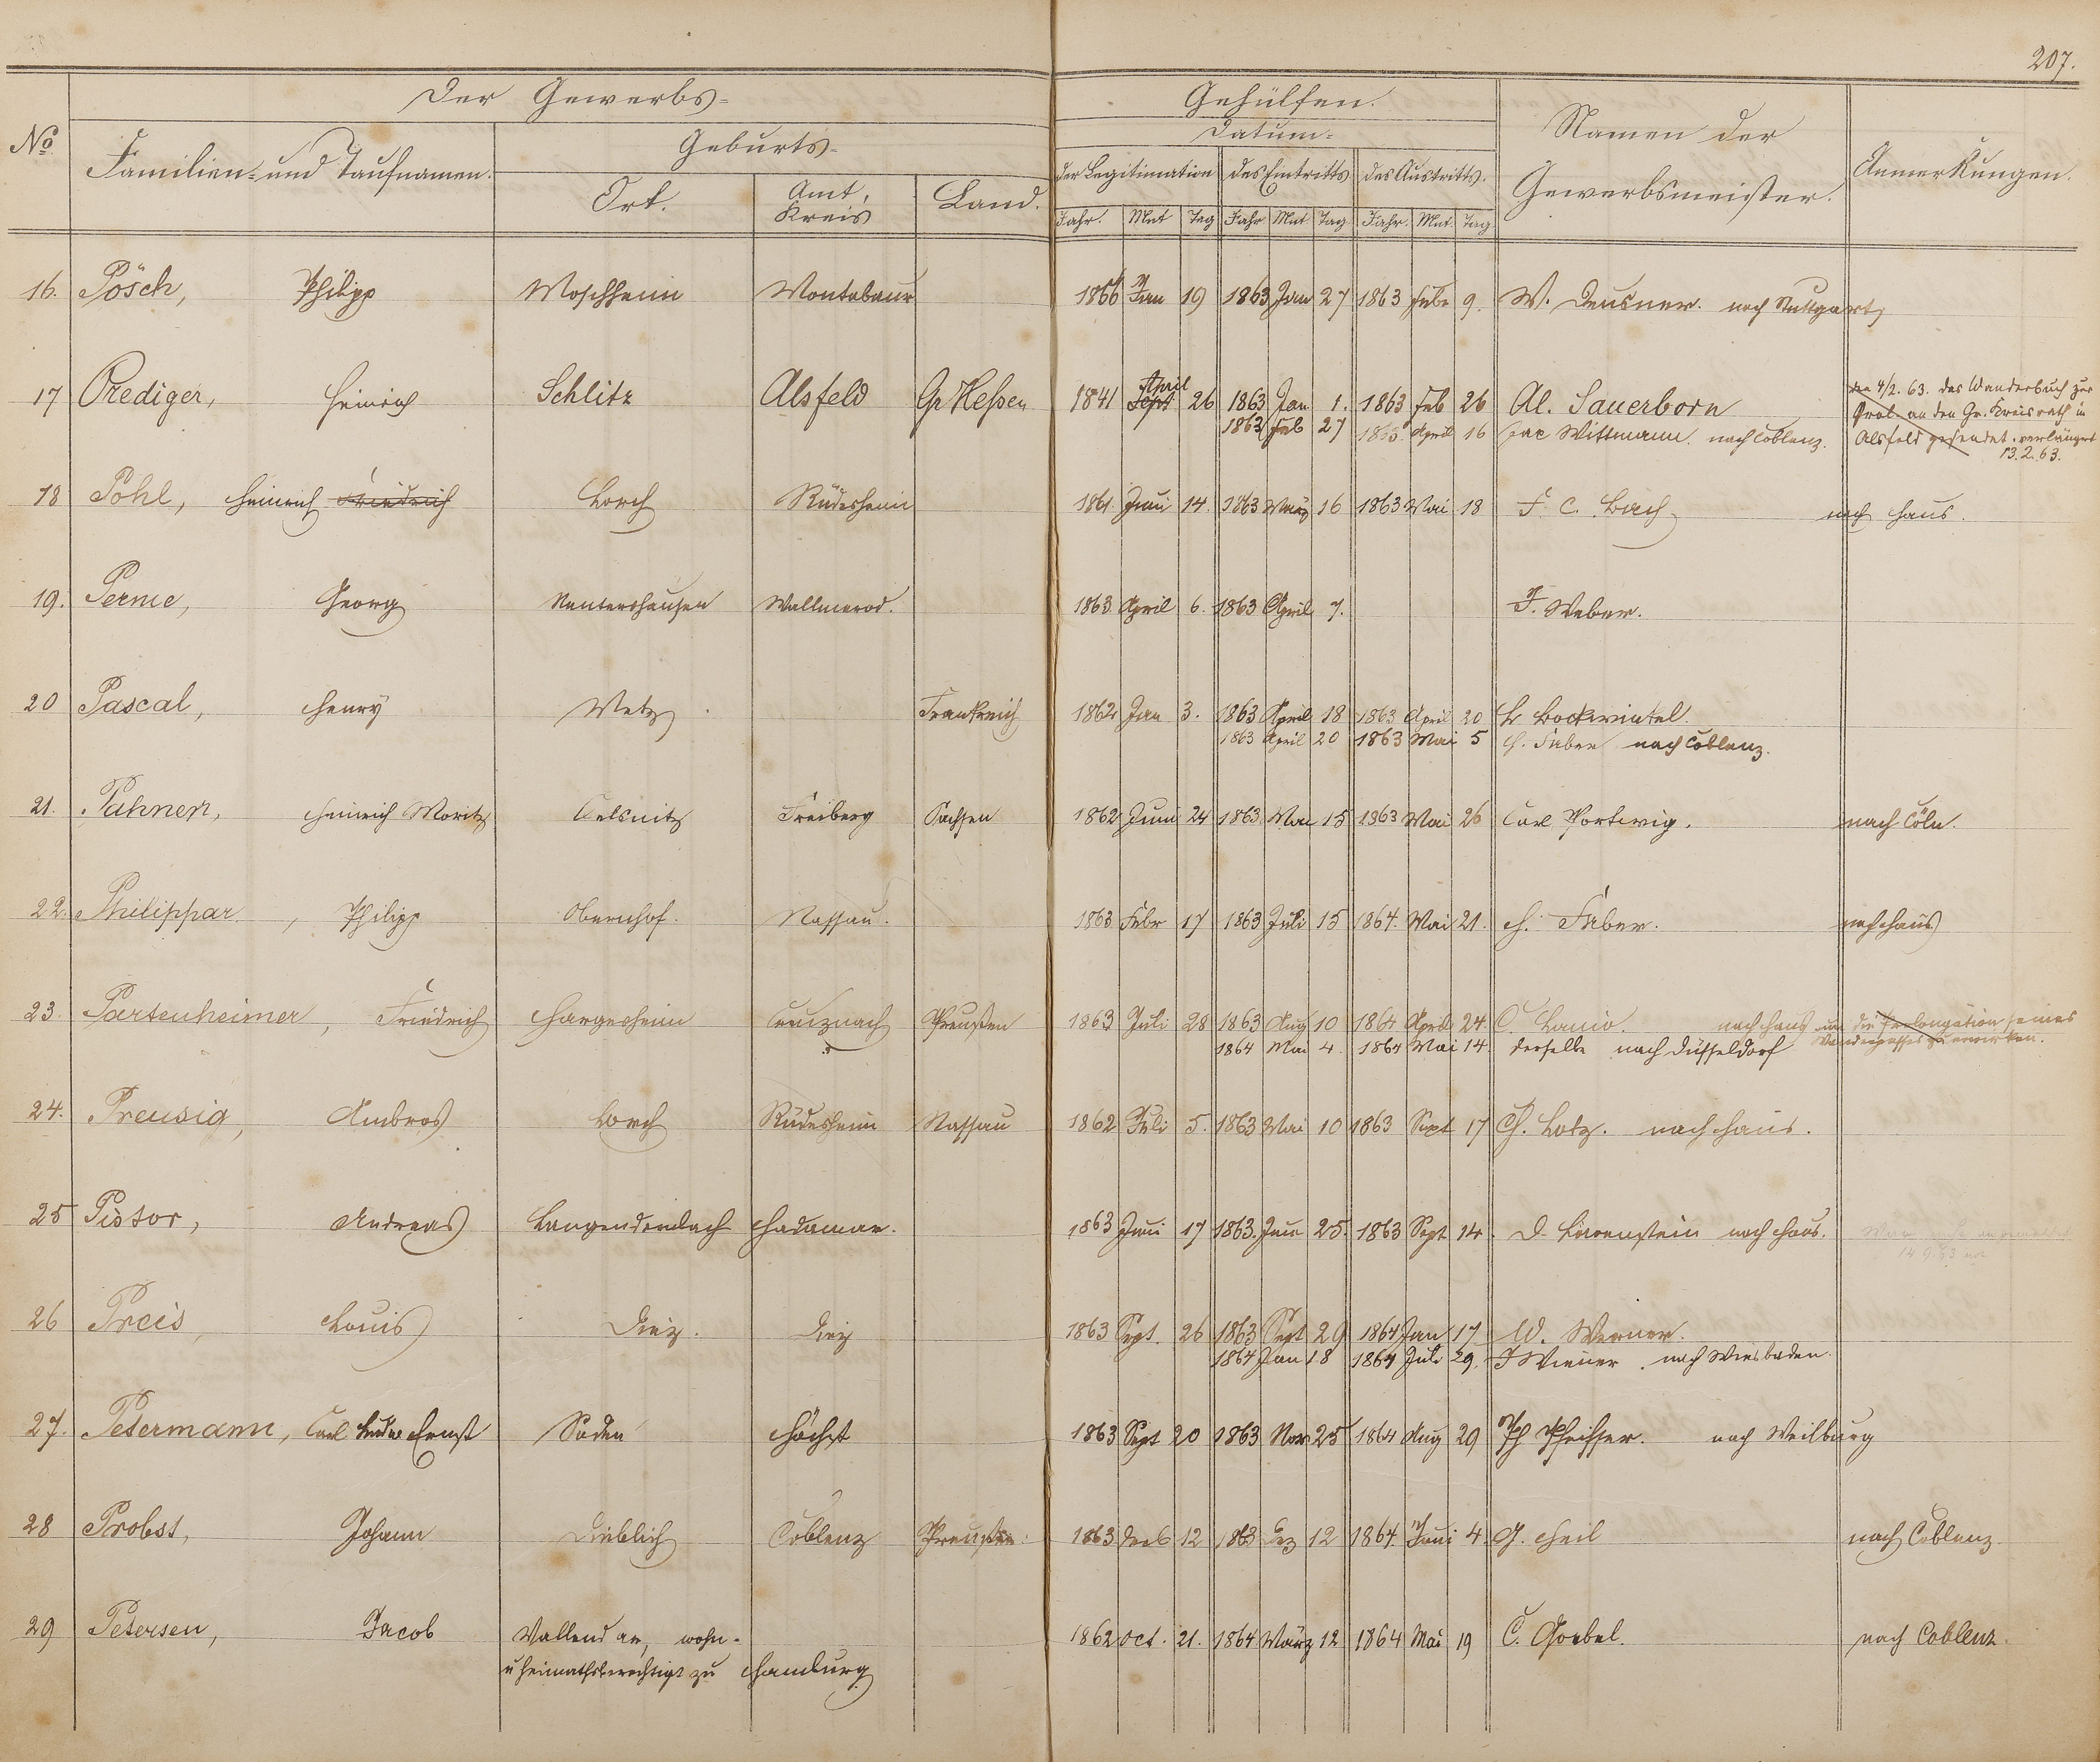 207.
Der Gewerbs- Gehülfen.
No. Familien- und Taufnamen. Geburts- Ort. Amt, Kreis Land. Datum- der Legitimation des Eintritts des Austritts. Namen der Gewerbsmeister. Anmerkungen.
Jahr. Mnt Tag Jahr Mnt Tag Jahr. Mnt Tag
16. Pösch, Philipp Moschheim Montabaur 1866 Jan 19 1863 Jan 27 1863 Febr 9. W. Deusner. nach Stuttgart
17 Prediger, Heinrich Schlitz Alsfeld Gr Hessen 1841 April Sept 26 1863 Jan 1. 1863 Feb 26 Al. Sauerborn
1863 Feb 27 1863 April 16 Wittmann. nach Coblenz.
den 4/2. 63. das Wanderbuch zur
Prol. an den Gr. Kreisrath in
Alsfeld gesendet. verlängert
13.2.63.
18 Pohl, Heinrich Friedrich Lorch Rüdesheim 1861. Juni 14. 1863 März 16 1863 Mai 18 F. C. Bach nach Haus.
19. Perme, Georg Nentershausen Wallmerod. 1863 April 6. 1863 April 7. J. Weber.
20 Pascal, Henry Metz Frankreich 1862 Jan 3. 1863 April 18 1863 April 20 L Bockwinkel.
1863 April 20 1863 Mai 5 H. Faber nach Coblenz.
21. Pahner, Heinrich Moritz Oelsnitz Freiberg Sachsen 1862 Juni 24 1863 Mai 15 1863 Mai 26 Carl Portwig. nach Cöln.
22. Philippar, Philipp Obernhof. Nassau. 1863 Febr 17 1863 Juli 15 1864. Mai 21. H. Faber. nach Haus
23. Partenheimer, Friedrich Hargesheim Creuznach Preußen 1863 Juli 28 1863 Aug 10 1864 April 24 C. Lanio. nach Haus um die Prolongation seines
1864 Mai 4. 1864 Mai 14. derselbe nach Düsseldorf Wanderpasses zu erwirken.
24. Preusig, Ambros Lorch Rüdesheim Nassau 1862 Juli 5. 1863 Mai 10 1863 Sept 17 Ch. Lotz. nach Haus.
25 Pistor, Andreas Langendernbach Hadamar. 1863 Juni 17 1863. Juni 25. 1863 Sept 14. D. Löwenstein nach Haus.
26 Preis, Louis Diez. Diez 1863 Sept. 26 1863 Sept 29 1864 Jan 17 W. Werner.
1864 Jan 18 1864 Juli 29. J Wiener. nach Wiesbaden.
27. Petermann, Carl Ernst Soden Höchst 1863 Sept 20 1863 Nov 25 1864 Aug 29 Ph Pfeiffer. nach Weilburg
28 Probst, Johann Dieblich Coblenz Preußen. 1863 Decb 12 1863 Dez 12 1864. Juni 4. G. Heil nach Coblenz.
29 Petersen, Jacob Vallendar, wohn- 1862 Oct. 21. 1864 März 12 1864 Mai 19 C. Goebel. nach Coblenz.
u heimathsberechtigt zu Hamburg